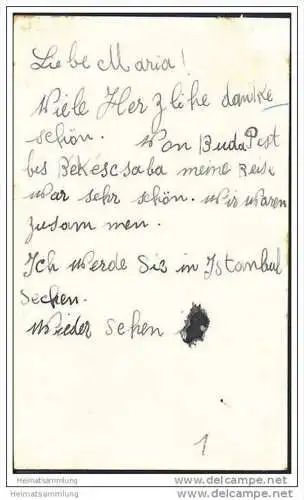 Liebe Maria!
Viele Herzlihe dankke
schön. Von BudaPest
bis Békéscsaba meine Reise
war sehr schön. Wir waren
zusammen.
Ich werde Sie in Istanbul
sechen.
Wieder sehen
1
Heimatsammlung
Heimatsammlung
www.delcampe.net